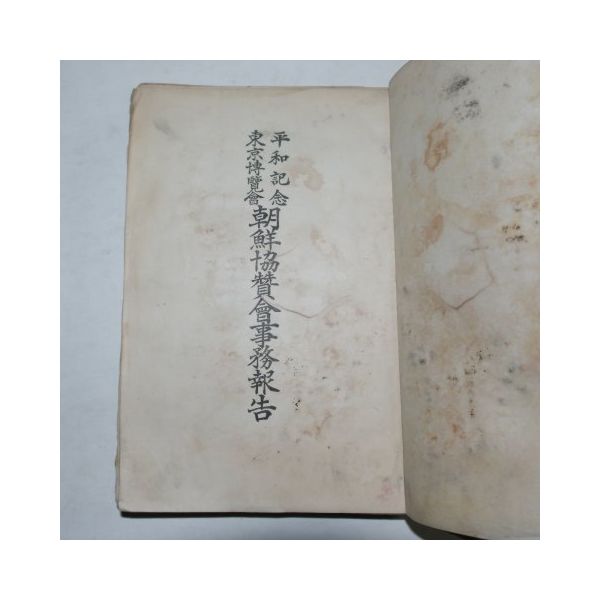 平和記念
東京博覽會
朝鮮協贊會事務報告